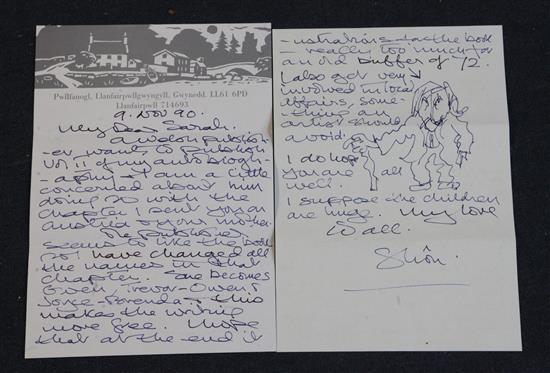 Pwllfanogl, Llanfairpwllgwyngyll, Gwynedd. LL61 6PD
Llanfairpwll 714693
9. Nov 90.
My Dear Sarah.
A London publish-
er wants to publish
Vol. II of my autobiogh-
-aphy & I am a little
concerned about him
doing so with the
chapter I sent you on
your mother.
The publisher
seems to like the book
so I have changed all
the names in that
chapter. She becomes
Gwen, Trevor - Owen &
Joyce - Brenda & this
makes the writing
more free. I hope
that at the end it
-ustrations for the book
- really too much for
an old buffer of 72.
I also get very
involved in local
affairs, some-
thing an
artist should
avoid.
I do hope
you are all
well.
I suppose the children
are huge. My love
to all.